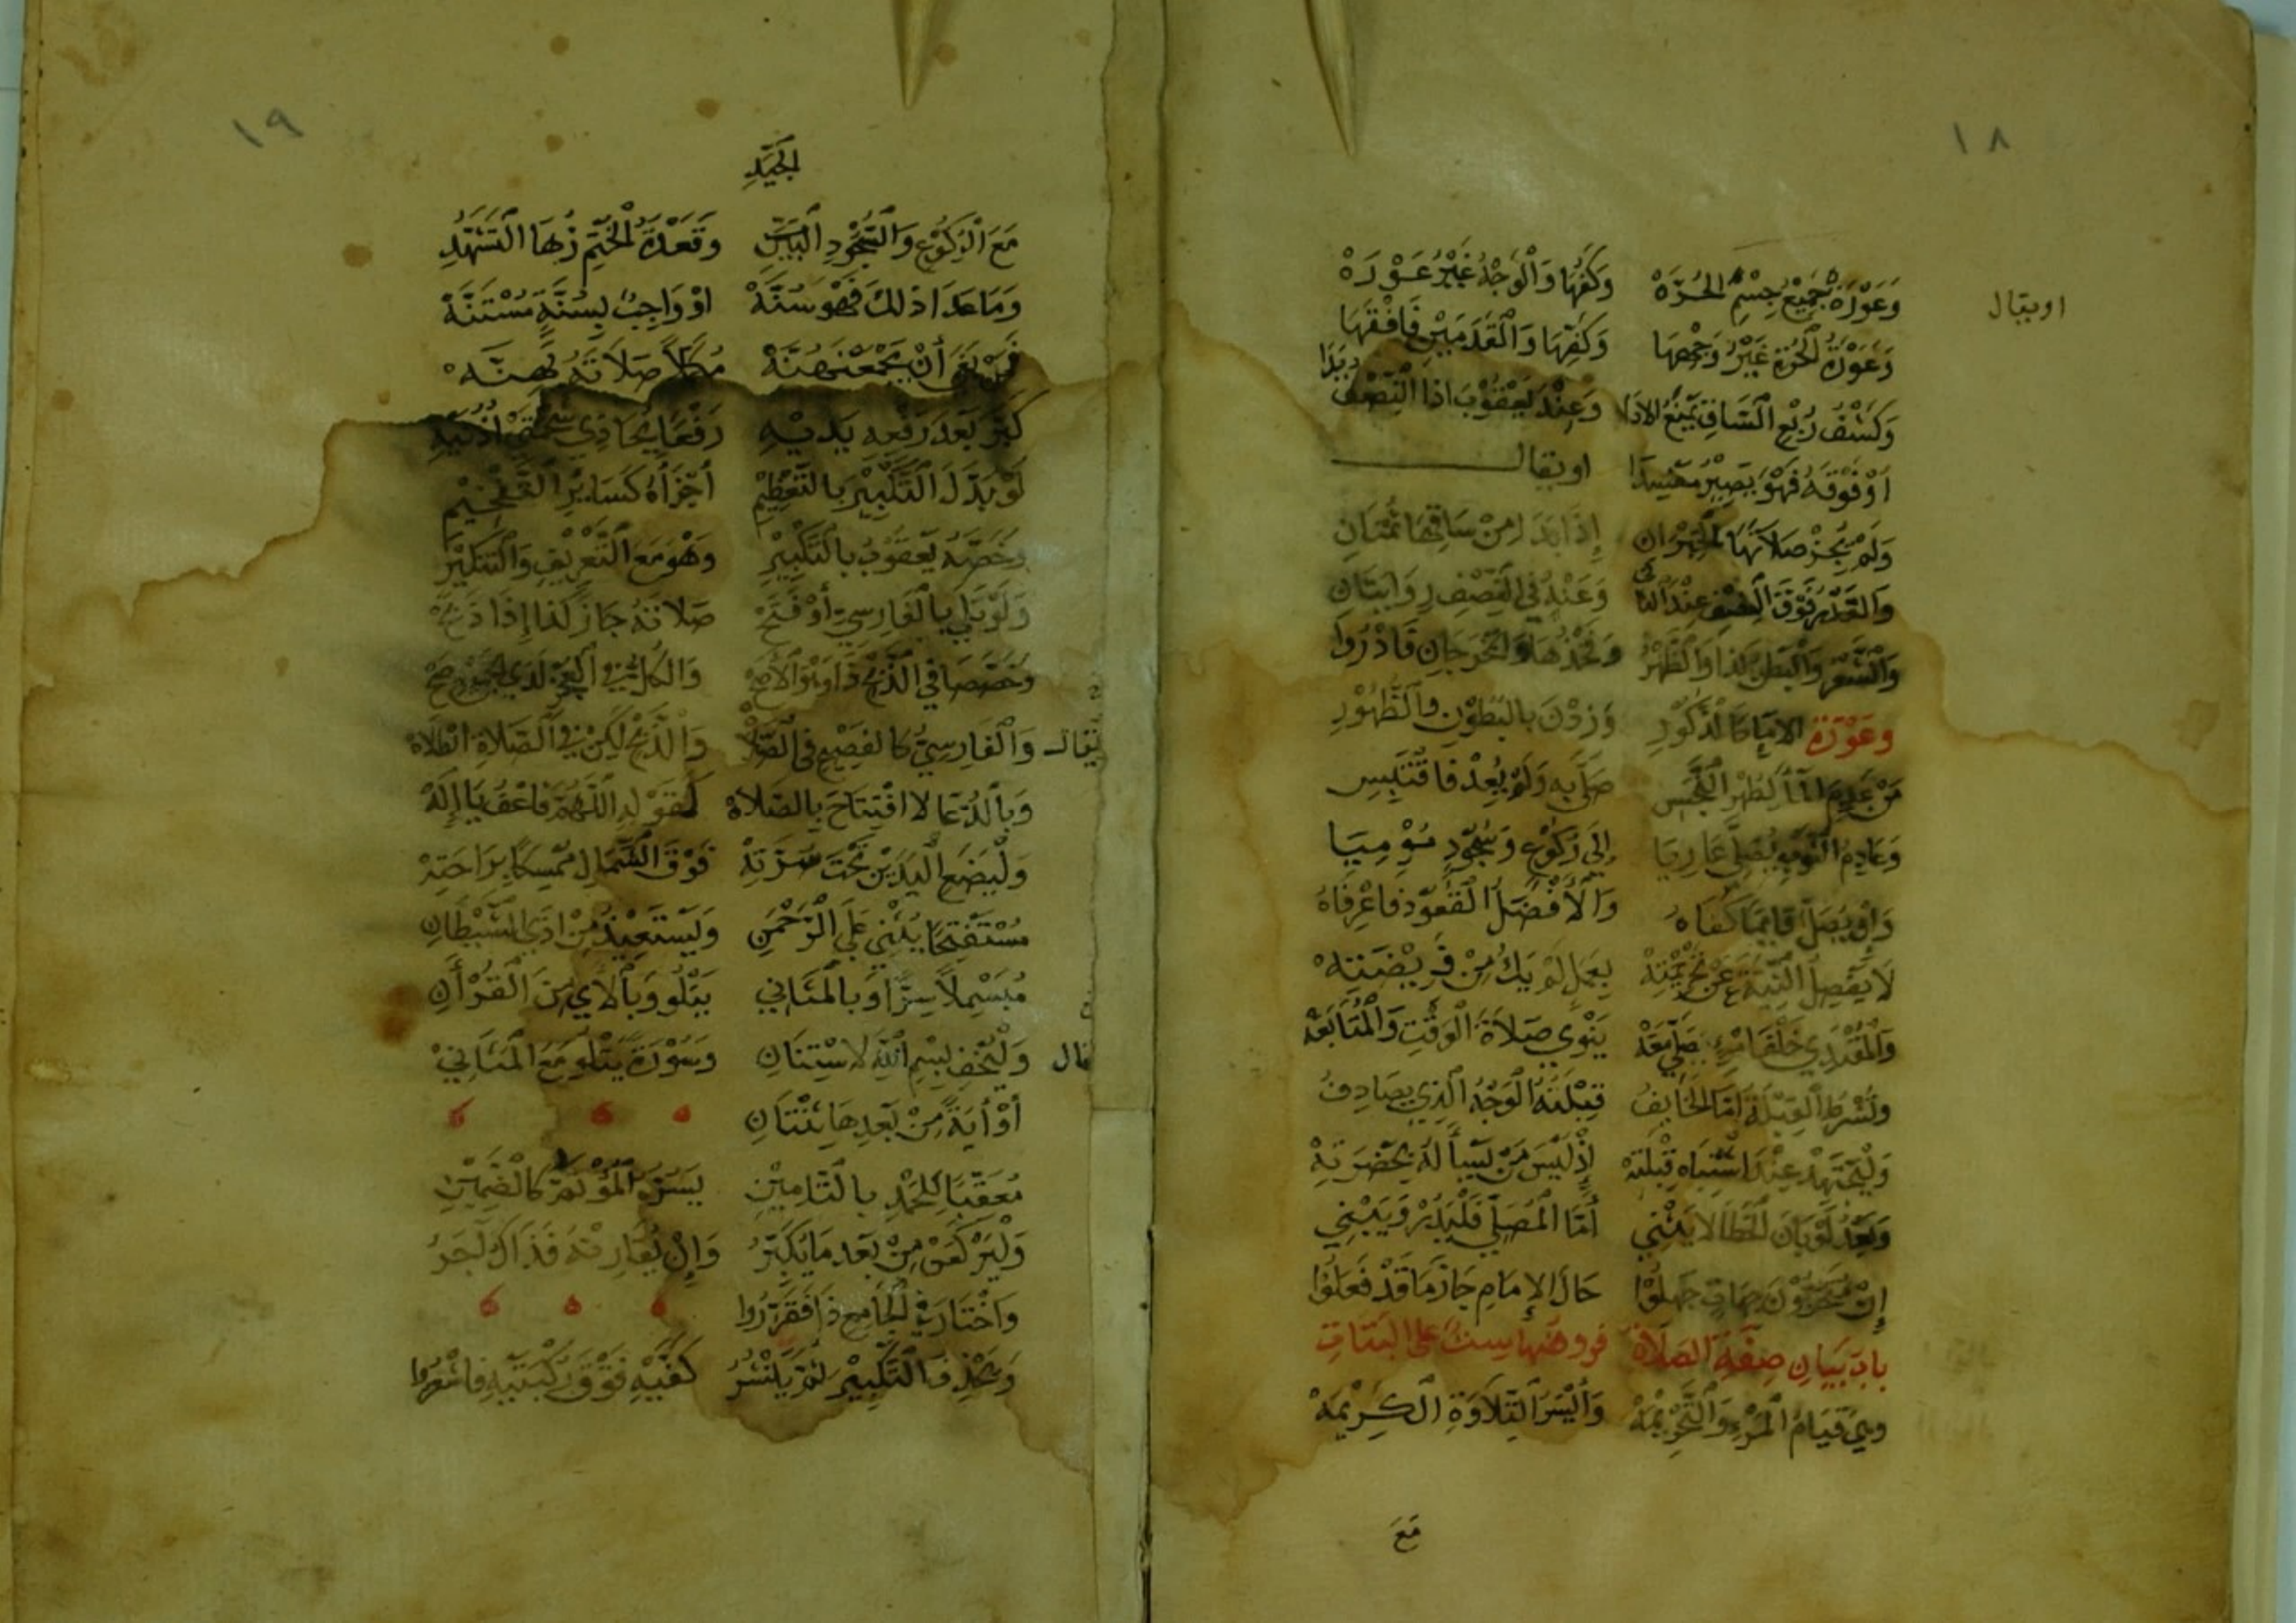 ١٨
وَعَوْرَةٌ جَمِيْعُ جِسْمِ الحُرَّهْ وَكَفُّهَا وَالْوَجْهُ غَيْرُ عَوْرَهْ
اويقال
وَعَوْرَةُ الحُرَّةِ غَيْرُ وَجْهِهَا وَكَفِّهَا وَالْقَدَمَيْنِ فَافْقَهَا
وَكَشْفُ رُبْعِ السَّاقِ يَمْنَعُ الادَا وَعِنْدَ يَعْقُوْبَ اذا النِّصْفُ بَدَا
اَوْ فَوْقَهُ فَهْوَ يَصِيْرُ مُفْسِدَا اويقال
وَلَمْ يُجِزْ صَلَاتَهَا الْحَبْرَانِ إِذَا بَدَا مِنْ سَاقِهَا ثُمْنَانِ
وَالقَدْرُ فَوْقَ النِّصْفِ عِنْدَ الثَّانِي وَعَنْهُ فِي النِّصْفِ رِوَايَتَانِ
وَالشَّعْرُ وَالْبَطْنُ كَذَا وَالظَّهْرُ وَفَخْذُهَا وَالْحَرَجَانِ فَادْرُوا
وعَوْرَة الامَا كَالذُّكُوْرِ وَزِدْنَ بِالْبُطُوْنِ وَالظُّهُوْرِ
مَنْ عَدِمَ الْمَا لِطُهْرِ النَّجَسِ صَلَّى بِهِ وَلَمْ يُعِدْ فَاقْتَبِسِ
وَعَادِمُ الثَّوْبِ يُصَلِّي عَارِيَا إِلَى رُكُوْعٍ وَسُجُوْدٍ مُوْمِيَا
وَاِنْ يُصَلِّ قَايِمًا كَفَاهُ وَالْأَفْضَلُ الْقُعُوْدُ فَاعْرِفَاهُ
لَا يَفْصِلُ النِّيَّةَ عَنْ تَحْرِيْمَتِهْ بِعَمَلٍ لَمْ يَكُ مِنْ فَرِيْضَتِهْ
وَالْمُقْتَدِي خَلْفَ امْرِئٍ يُصَلِّي مَعَهْ يَنْوِي صَلَاةَ الْوَقْتِ وَالْمُتَابَعَهْ
وَتُشْرَطُ الْقِبْلَةُ اَمَّا الْخَايِفُ قِبْلَتُهُ الْوَجْهُ الَّذِي يُصَادِفُ
وَلْيَجْتَهِدْ عِنْدَ اشْتِبَاهِ قِبْلَتِهْ إِذْ لَيْسَ مَنْ يَسْأَلُهُ بِحَضْرَتِهْ
وَبَعْدُ لَوْ بَانَ الْخَطَا لَا يَنْثَنِي أَمَّا الْمُصَلِّي فَلْيَدُرْ وَيَبْتَنِي
إِنْ يَتَحَرَّوْنَ جِهَاتٍ جَهِلُوْا حَالَ الإِمَامِ جَازَ مَا قَدْ فَعَلُوْا
باب بَيَانِ صِفَةِ الصَّلَاة فروضها ست على البتات
وَهِيَ قِيَامُ الْمَرْءِ وَالتَّحْرِيْمَهْ وَأَيْسَرُ التِّلَاوَةِ الْكَرِيْمَهْ
مَعَ
١٩
مَعَ الرُّكُوْعِ وَالسُّجُوْدِ البَيِّنِ وَقَعْدَةُ الْخَتْمِ بِهَا التَّشَهُّدِ الجَيِّدِ
وَمَا عَدَا ذلكَ فَهْوَ سُنَّهْ اوْ وَاجِبٌ بِسُنَّةٍ مُسْتَنَّهْ
فَمَنْ بَغَى أَنْ يَجْمَعَنْهُنَّهْ مُكَمِّلًا صَلَاتَهُ بِهِنَّهْ
كَبَّرَ بَعْدَ رَفْعِهِ يَدَيْهِ رَفْعًا يُحَاذِي شَحْمَتَيْ اُذْنَيْهِ
لَوْ بَدَّلَ التَّكْبِيْرَ بِالتَّعْظِيْمِ أَجْزَأَهُ كَسَايِرِ التَّفْخِيْمِ
وَخَصَّهُ يَعْقُوْبُ بِالتَّكْبِيْرِ وَهْوَ مَعَ التَّعْرِيْفِ وَالتَّنْكِيْرِ
وَلَوْ تَلَى بِالْفَارِسِيِّ أَوْ فَتَحْ صَلَاتَهُ جَازَ كَذَا إِذَا ذَبَحْ
وَخَصَّصَا فِي الذَّبْحِ ذَا وَهْوَ الْأَصَحْ وَالكُلُّ فِي الْعَجْزِ لَدَى الْجَمِيْعِ صَحْ
يقال وَالْفَارِسِيُّ كَالْفَصِيْحِ فِي الصَّلَاةْ وَالذَّبْحِ لَكِنْ فِي الصَّلَاةِ ابْطَلَاهْ
وَبِالدُّعَا لَا افْتِتَاحَ بِالصَّلَاةْ كَقَوْلِهِ اللَّهُمَّ فَاعْفُ يَا إِلَهْ
وَلْيَضَعِ الْيَدَيْنِ تَحْتَ سُرَّتِهْ فَوْقَ الشِّمَالِ مُمْسِكًا بِرَاحَتِهْ
مُسْتَفْتِحًا يُثْنِي عَلَى الرَّحْمَنِ وَلْيَسْتَعِيْذْ مِنْ اَذَى الشَّيْطَانِ
مُبَسْمِلًا سِرًّا وَبِالْمَثَانِي يَتْلُو وَبِالْآيِ مِنَ الْقُرْأَنِ
قال وَلْيُخْفِ بِسْمِ اللَّهِ لِاسْتِنَانِ وَسُوْرَةً يَتْلُو مَعَ الْمَثَانِيْ
أَوْ أٰيَةً مِنْ بَعْدِهَا ثِنْتَانِ
مُعَقِّبًا لِلْحَمْدِ بِالتَّامِيْنِ يُسِرُّهُ الْمُؤْتَمُّ كَالضَّمِيْنِ
وَلْيَرْكَعَنْ مِنْ بَعْدِ مَا يُكَبِّرُ وَإِنْ يُقَارِنْهُ فَذَاكَ أَجْدَرُ
وَاخْتَارَ فِي الْجَامِعِ ذَا فَقَرِّرُوا
وَيَحْذِفُ التَّكْبِيْرَ ثُمَّ يَنْشُرُ كَفَّيْهِ فَوْقَ رُكْبَتَيْهِ فَاشْعُرُوا